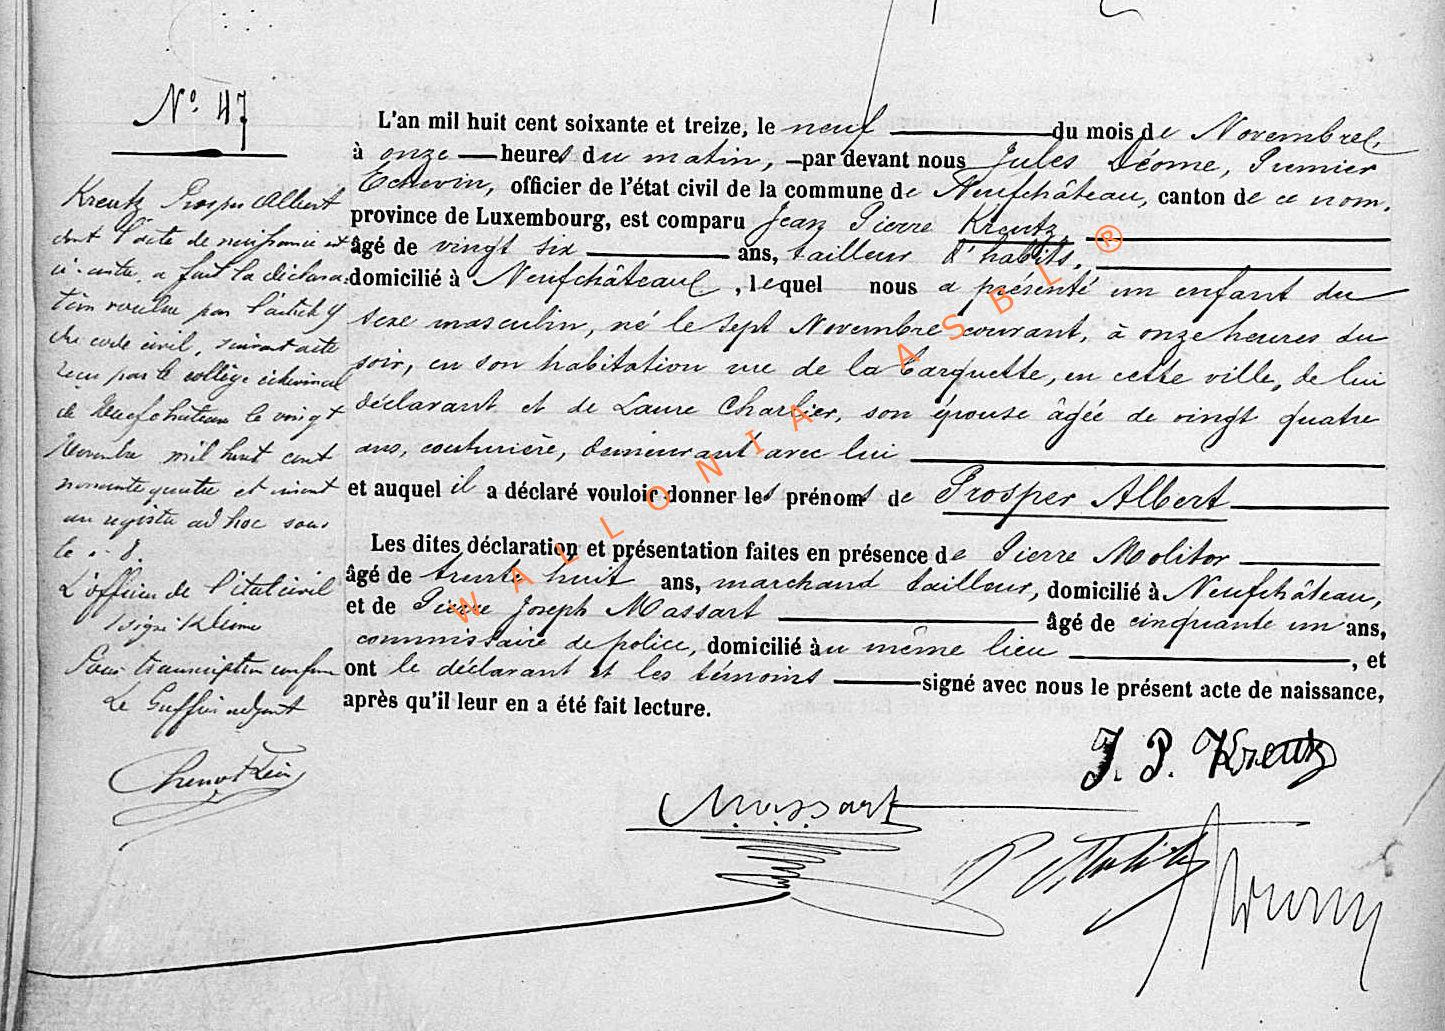 N° 47
L'an mil huit cent soixante et treize, le neuf du mois de Novembre
à onze heures du matin, par devant nous Jules Déome, Premier
Echevin, officier de l'état civil de la commune de Neufchâteau, canton de ce nom,
province de Luxembourg, est comparu Jean Pierre Kreutz
âgé de vingt six ans, tailleur d'habits,
domicilié à Neufchâteau, lequel nous a présenté un enfant du
sexe masculin, né le sept Novembre courant, à onze heures du
soir, en son habitation rue de la Barquette, en cette ville, de lui
déclarant et de Laure Charlier, son épouse âgée de vingt quatre
ans, couturière, demeurant avec lui
et auquel il a déclaré vouloir donner les prénoms de Prosper Albert
Les dites déclaration et présentation faites en présence de Pierre Molitor
âgé de trente huit ans, marchand tailleur, domicilié à Neufchâteau,
et de Pierre Joseph Massart âgé de cinquante un ans,
commissaire de police, domicilié au même lieu, et
ont le déclarant et les témoins signé avec nous le présent acte de naissance,
après qu'il leur en a été fait lecture.
Kreutz Prosper Albert
dont l'acte de naissance est
ci-contre, a fait la déclara-
tion voulue par l'article 9
du code civil, suivant acte
reçu par le collège échevinal
de Neufchâteau le vingt
Novembre mil huit cent
nonante quatre et inscrit
au registre ad hoc sous
le n° 8.
L'officier de l'état civil
signé
Pour transcription conforme
Le Greffier adjoint
J. P. Kreutz
Massart
P Molitor
WALLONIA ASBL ®